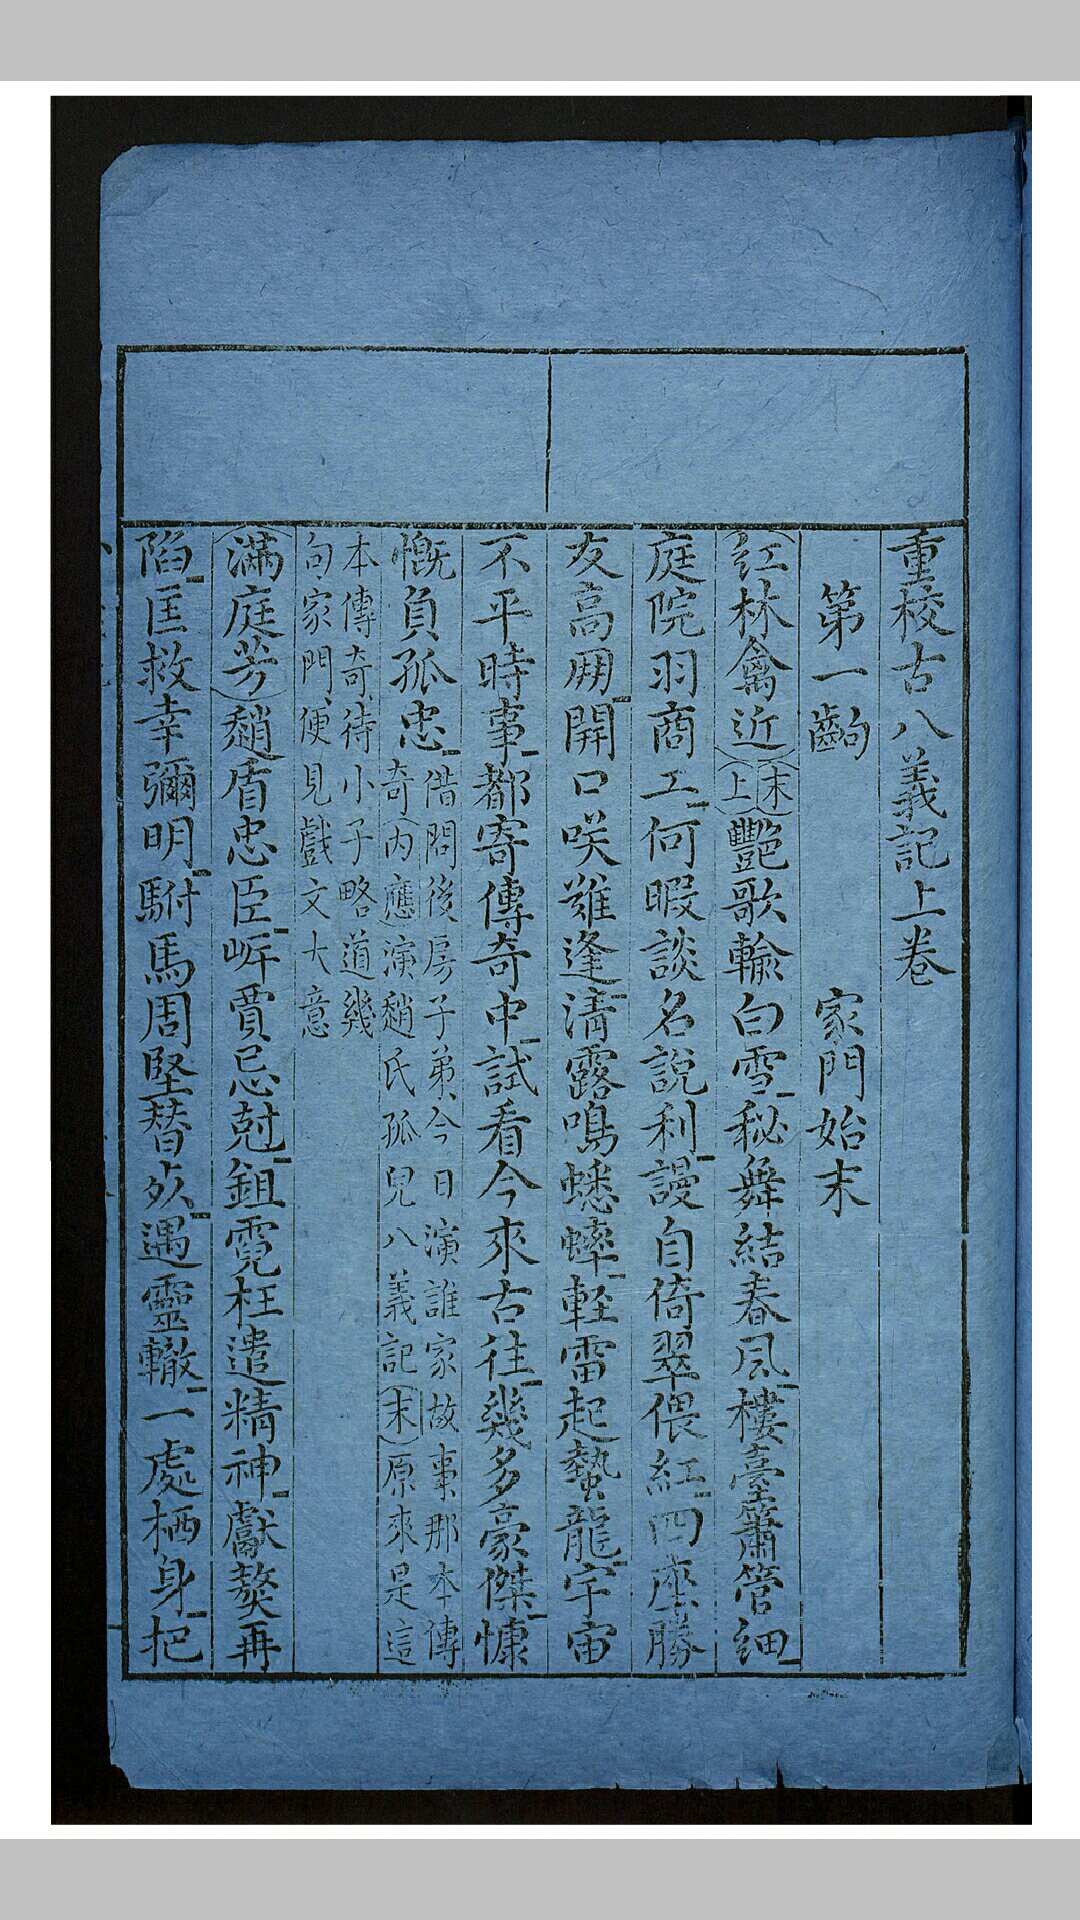 重校古八義記上卷
第一齣　家門始末
（紅林禽近）（末上）豔歌輸白雪秘舞結春風樓臺簫管細
庭院羽商工何暇談名說利謾自倚翠偎紅四座勝
友高朋開口咲難逢清露鳴蟋蟀輕雷起蟄龍宇宙
不平時事都寄傳奇中試看今來古往幾多豪傑慷
慨負孤忠借問後房子弟今日演誰家故事那本傳
奇（內應）演趙氏孤兒八義記（末）原來是這
本傳奇待小子略道幾
句家門便見戲文大意
（滿庭芳）趙盾忠臣岸賈忌尅鉏霓枉遣精神獻獒再
陷匡救幸彌明駙馬周堅替死遇靈輒一處栖身把